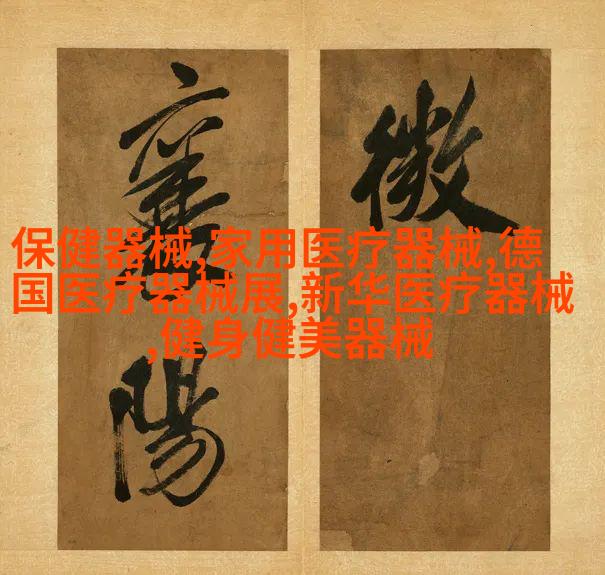 保健器械,家用医疗器械,德
国医疗器械展,新华医疗器械
,健身健美器械
襄
陽